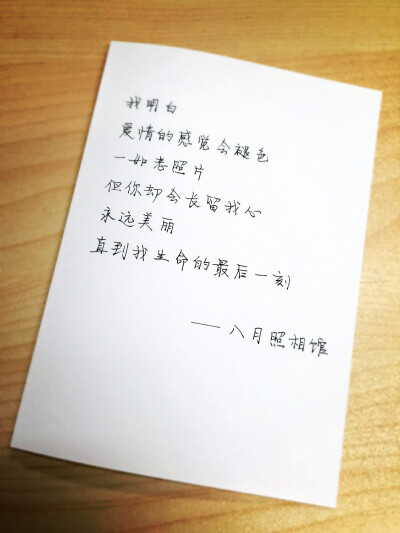 我明白
爱情的感觉会褪色
一如老照片
但你却会长留我心
永远美丽
直到我生命的最后一刻
—— 八月照相馆